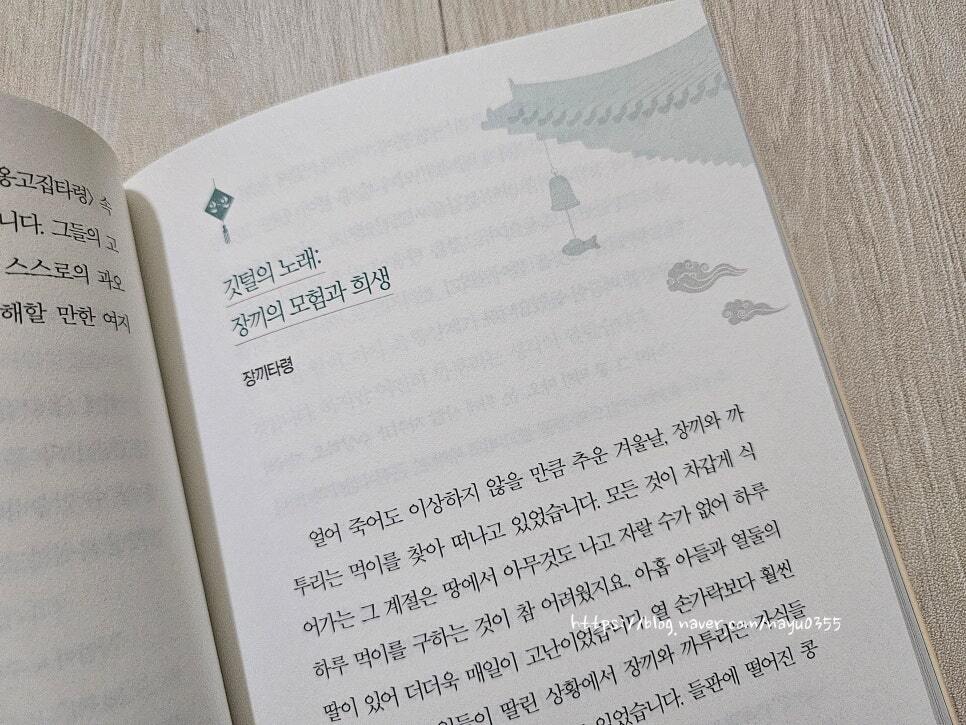 옹고집타령〉 속
니다. 그들의 고
스스로의 과오
해할 만한 여지
깃털의 노래:
장끼의 모험과 희생
장끼타령
얼어 죽어도 이상하지 않을 만큼 추운 겨울날, 장끼와 까
투리는 먹이를 찾아 떠나고 있었습니다. 모든 것이 차갑게 식
어가는 그 계절은 땅에서 아무것도 나고 자랄 수가 없어 하루
하루 먹이를 구하는 것이 참 어려웠지요. 아홉 아들과 열둘의
https://blog.naver.com/nayu0355
딸이 있어 더더욱 매일이 고난이었답니다. 열 손가락보다 훨씬
딸린 상황에서 장끼와 까투리는 가식들
있었습니다. 들판에 떨어진 콩